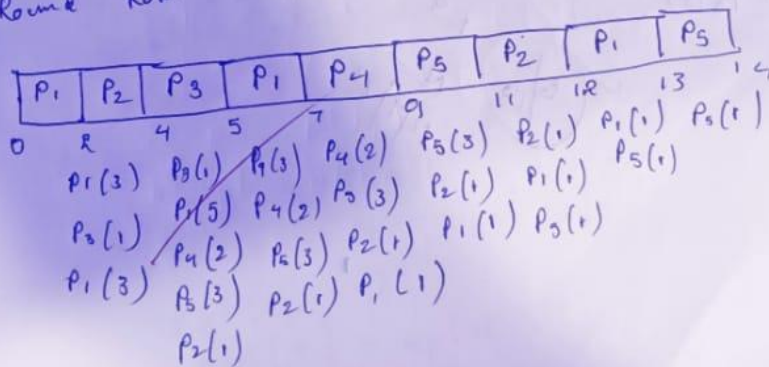 Round
P1 P2 P3 P1 P4 P5 P2 P1 P5
0 2 4 5 7 9 11 12 13
P1(3) P3(1) P1(3) P4(2) P5(3) P2(1) P1(1) P5(1)
P3(1) P1(5) P4(2) P5(3) P2(1) P1(1) P5(1)
P1(3) P4(2) P5(3) P2(1) P1(1) P5(1)
P5(3) P2(1) P1(1)
P2(1)